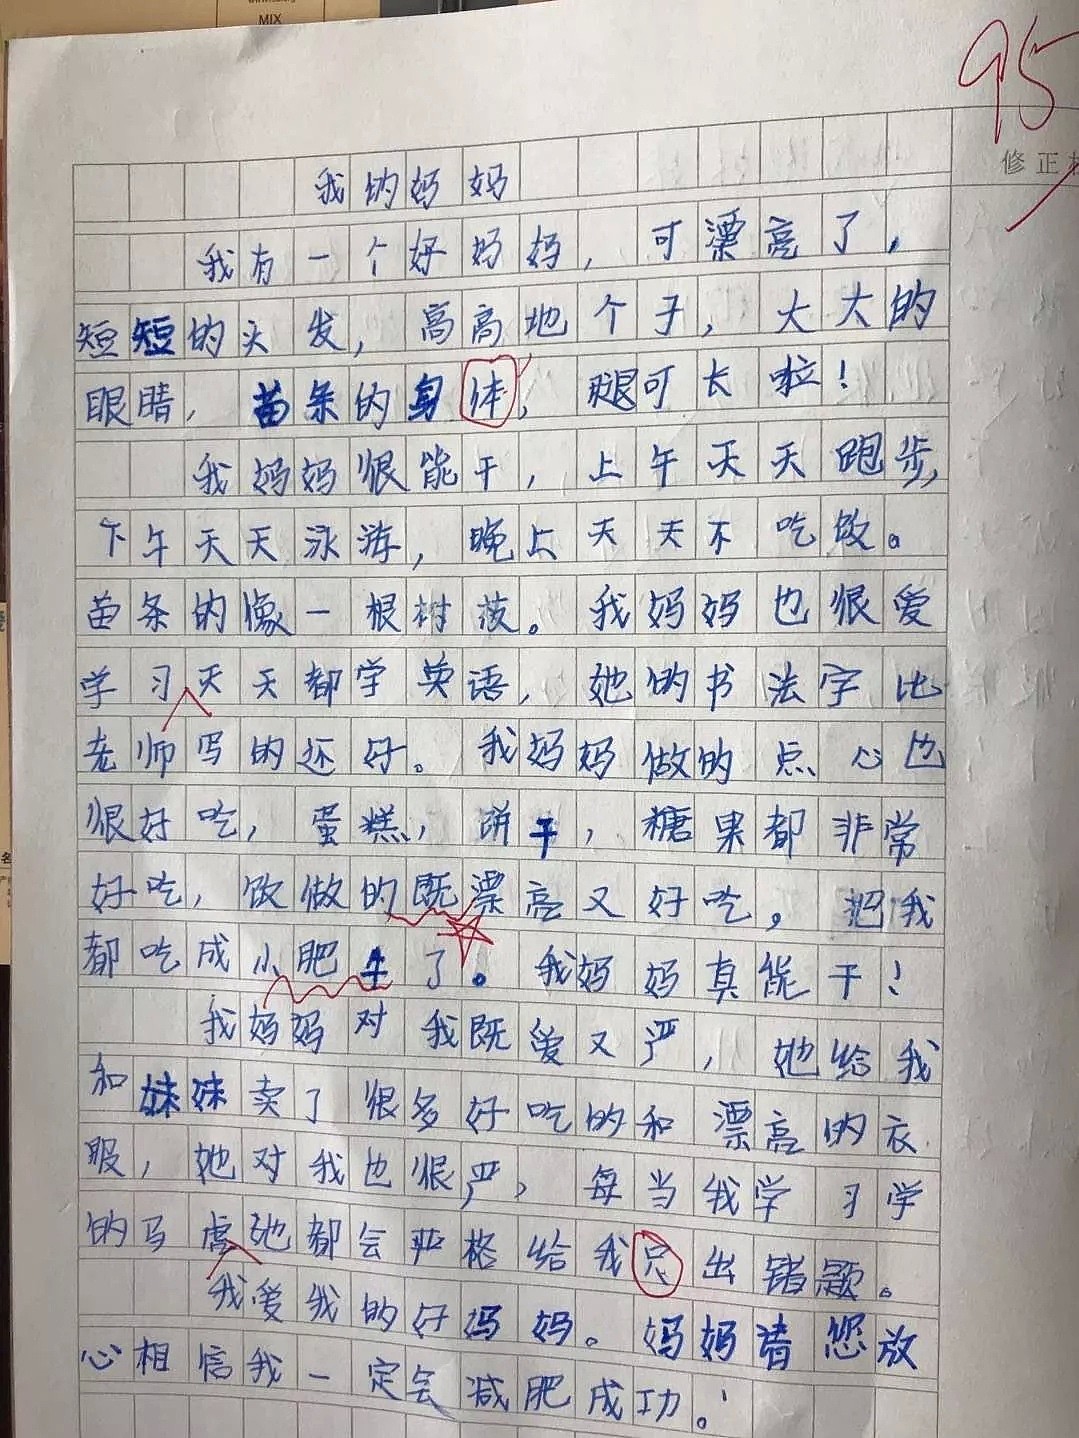 MIX
95
修正
我的妈妈
我有一个好妈妈，可漂亮了，
短短的头发，高高地个子，大大的
眼睛，苗条的身体，腿可长啦！
我妈妈很能干，上午天天跑步，
下午天天泳游，晚上天天不吃饭。
苗条的像一根树枝。我妈妈也很爱
学习天天都学英语，她的书法字比
老师写的还好。我妈妈做的点心也
很好吃，蛋糕，饼干，糖果都非常
好吃，饭做的既漂亮又好吃，把我
都吃成小肥牛了。我妈妈真能干！
我妈妈对我既爱又严，她给我
和妹妹卖了很多好吃的和漂亮的衣
服，她对我也很严，每当我学习学
的马虎她都会严格给我只出错题。
我爱我的好妈妈。妈妈请您放
心相信我一定会减肥成功。！